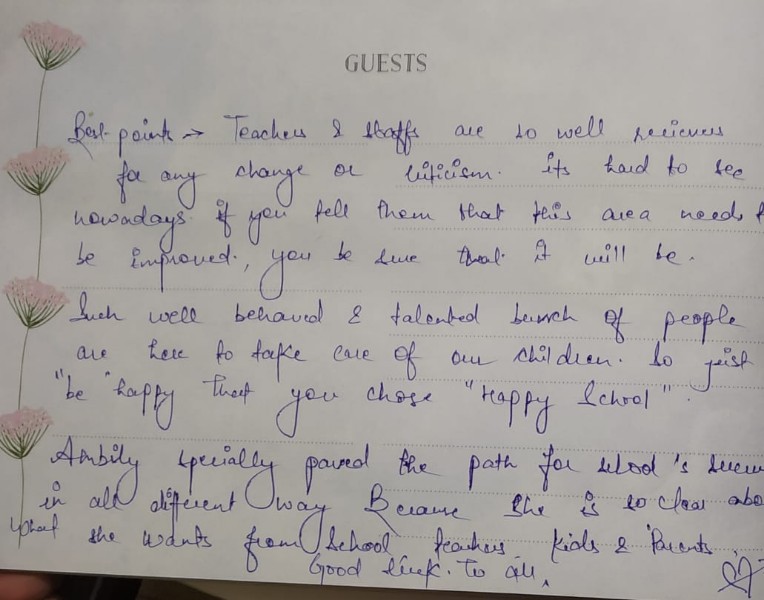 GUESTS
Best point → Teachers & staffs are so well recievers
for any change or criticism. its hard to see
nowadays. if you tell them that this area needs t
be improved., you be sure that it will be.
Such well behaved & talented bunch of people
are here to take care of our children. So just
"be happy that you chose "Happy School".
specially paved the path for school's
in all different way Because she is so clear abo
what she wants from School teachers, kids & Parents.
Good luck. To all.